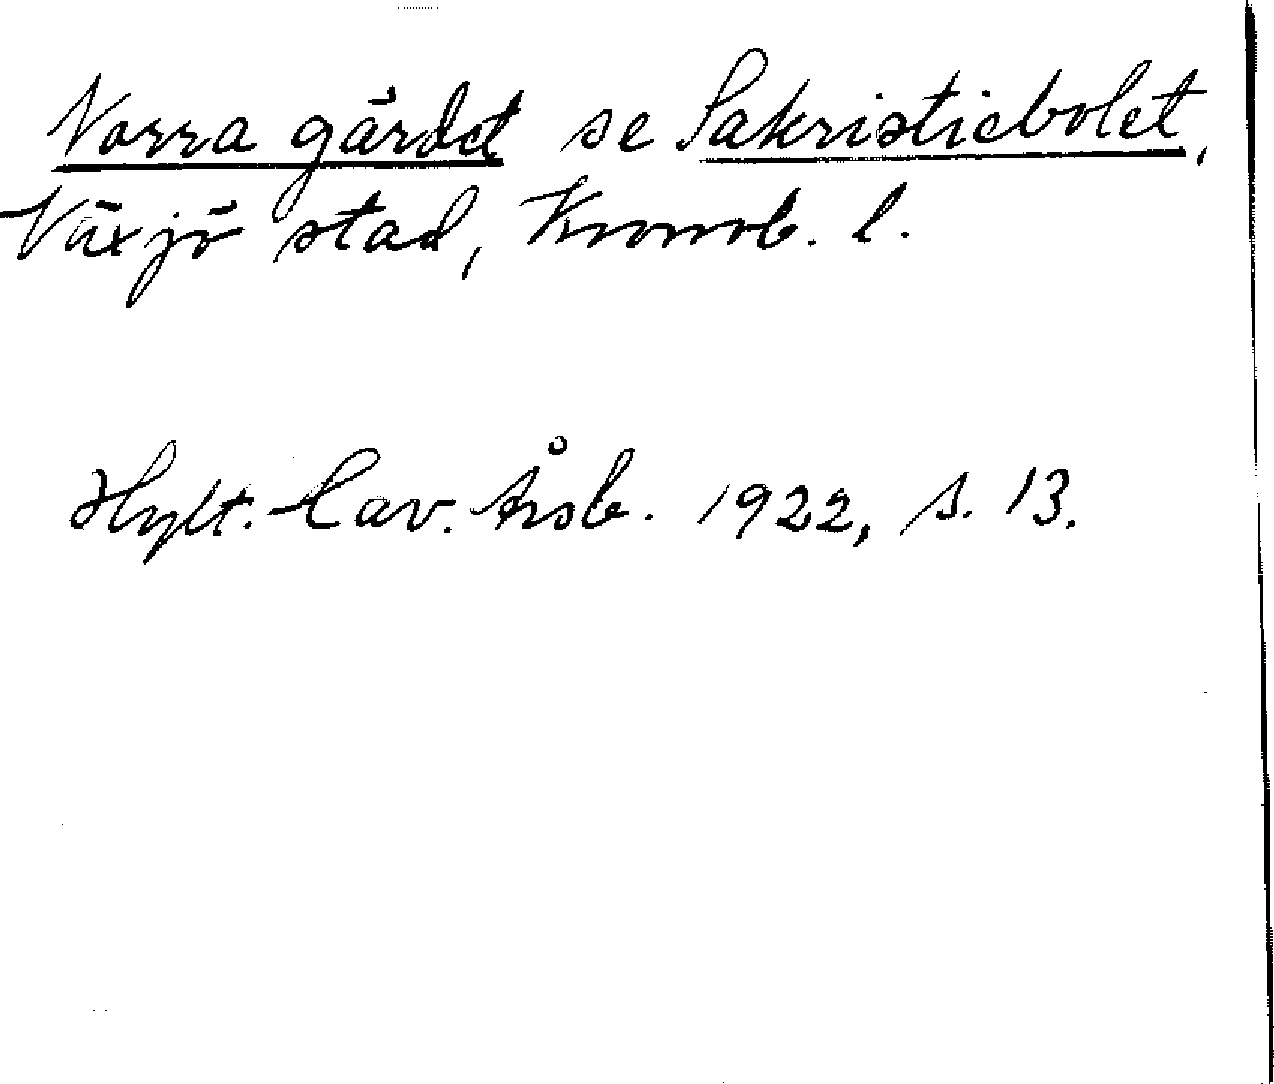 Norra gärdet se Sakristiebolet,
Växjö stad, Kronob. l.
Hylt.-Cav. Årsb. 1922, s. 13.